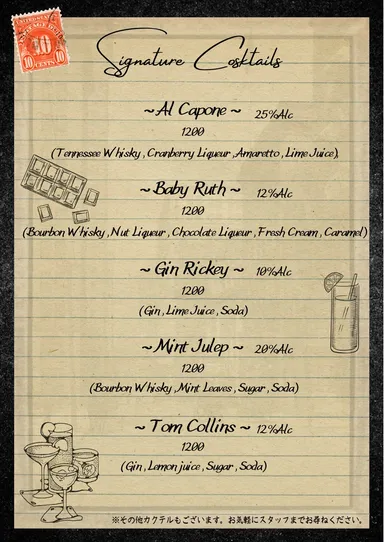 10
10 CENTS 10
Signature Cocktails
~Al Capone~ 25%Alc
1200
(Tennessee Whisky, Cranberry Liqueur, Amaretto, Lime Juice)
~Baby Ruth~ 12%Alc
1200
(Bourbon Whisky, Nut Liqueur, Chocolate Liqueur, Fresh Cream, Caramel)
~Gin Rickey~ 10%Alc
1200
(Gin, Lime Juice, Soda)
~Mint Julep~ 20%Alc
1200
(Bourbon Whisky, Mint Leaves, Sugar, Soda)
~Tom Collins~ 12%Alc
1200
(Gin, Lemon juice, Sugar, Soda)
※その他カクテルもございます。お気軽にスタッフまでお尋ねください。